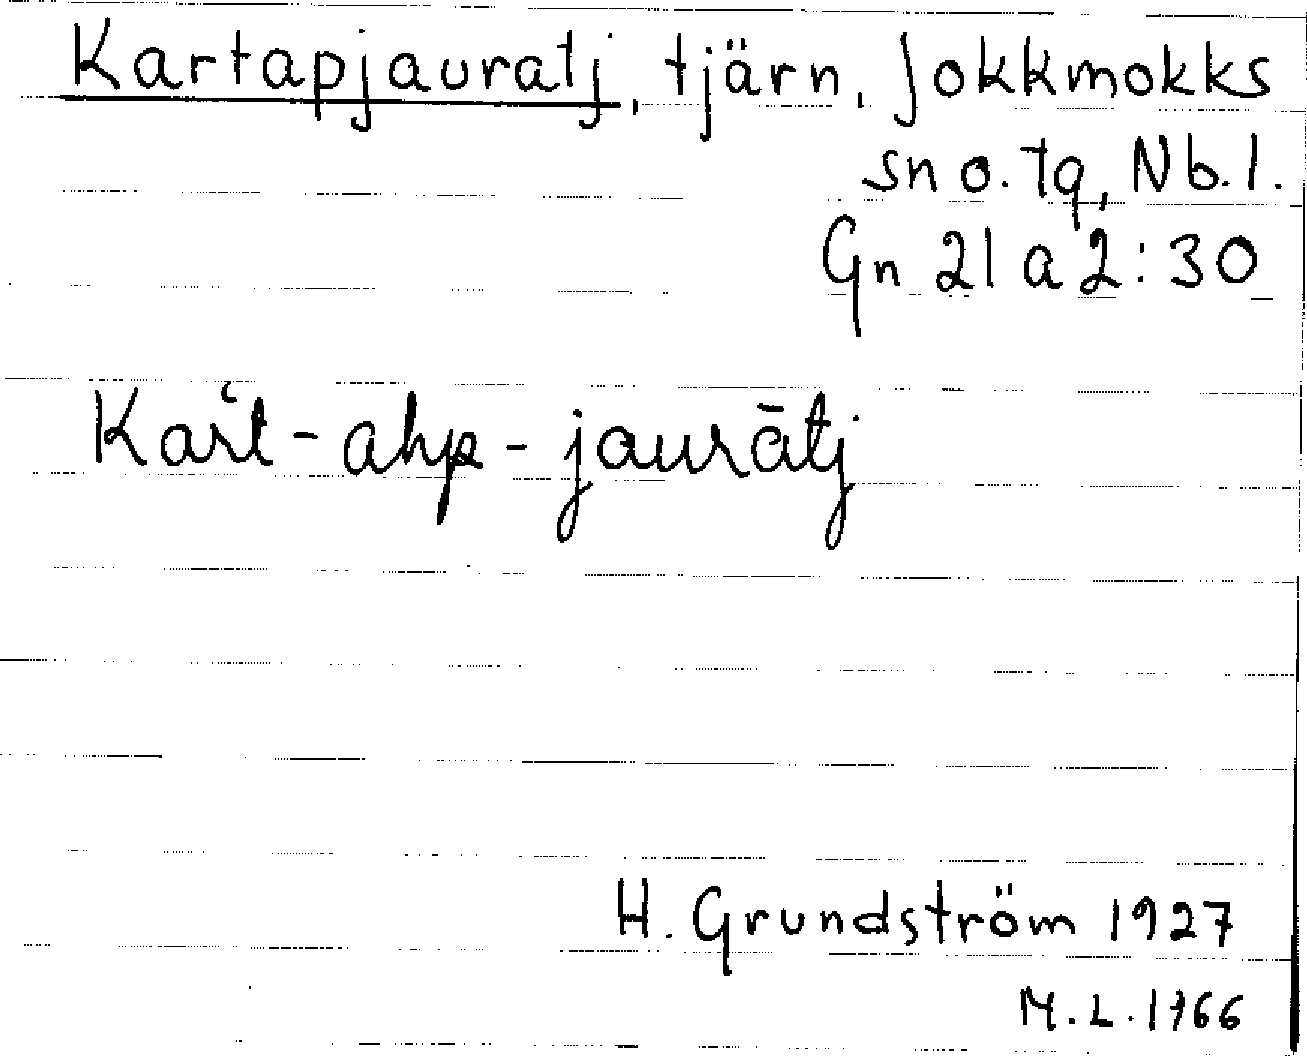 Kartapjauratj, tjärn, Jokkmokks
sn o. tq, Nb.l.
Gn 21 a 2:30
Kar̔t-ahp-jaurātj
H. Grundström 1927
M.L. 1966